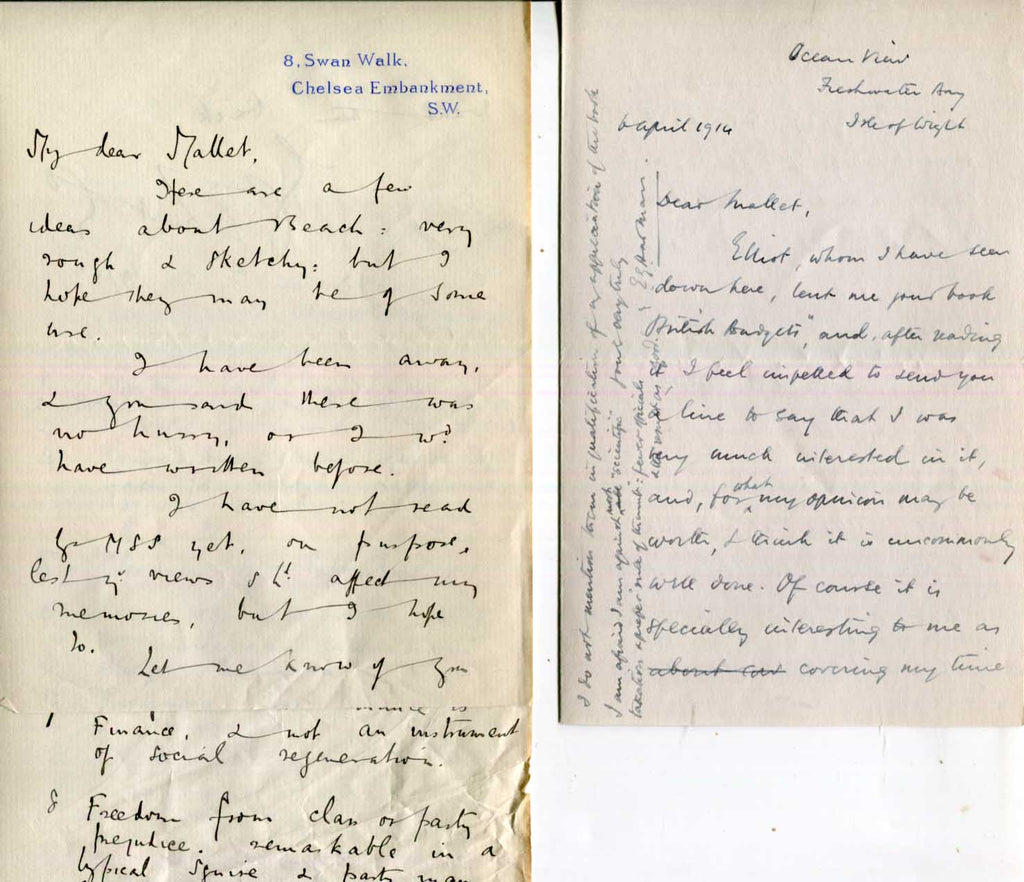 8, Swan Walk,
Chelsea Embankment,
S.W.
My dear Mallet,
Here are a few
ideas about Beach: very
rough & sketchy: but I
hope they may be of some
use.
I have been away,
& you said there was
no hurry, or I wd
have written before.
I have not read
yr MSS yet, on purpose,
lest yr views shd affect my
memories, but I hope
to.
Let me know if you
Finance, & not an instrument
of social regeneration.
8 Freedom from class or party
prejudice. remarkable in a
typical Squire & party man
Ocean View
Freshwater Bay
Isle of Wight
6 April 1914
Dear Mallet,
Elliot, whom I have seen
down here, lent me your book
"British Budgets", and, after reading
I feel impelled to send you
a line to say that I was
very much interested in it,
and, for what my opinion may be
worth, I think it is uncommonly
well done. Of course it is
specially interesting to me as
about cov covering my time
I do not mention them in qualification of my appreciation of the book
I am afraid I am against "scientific"
taxation